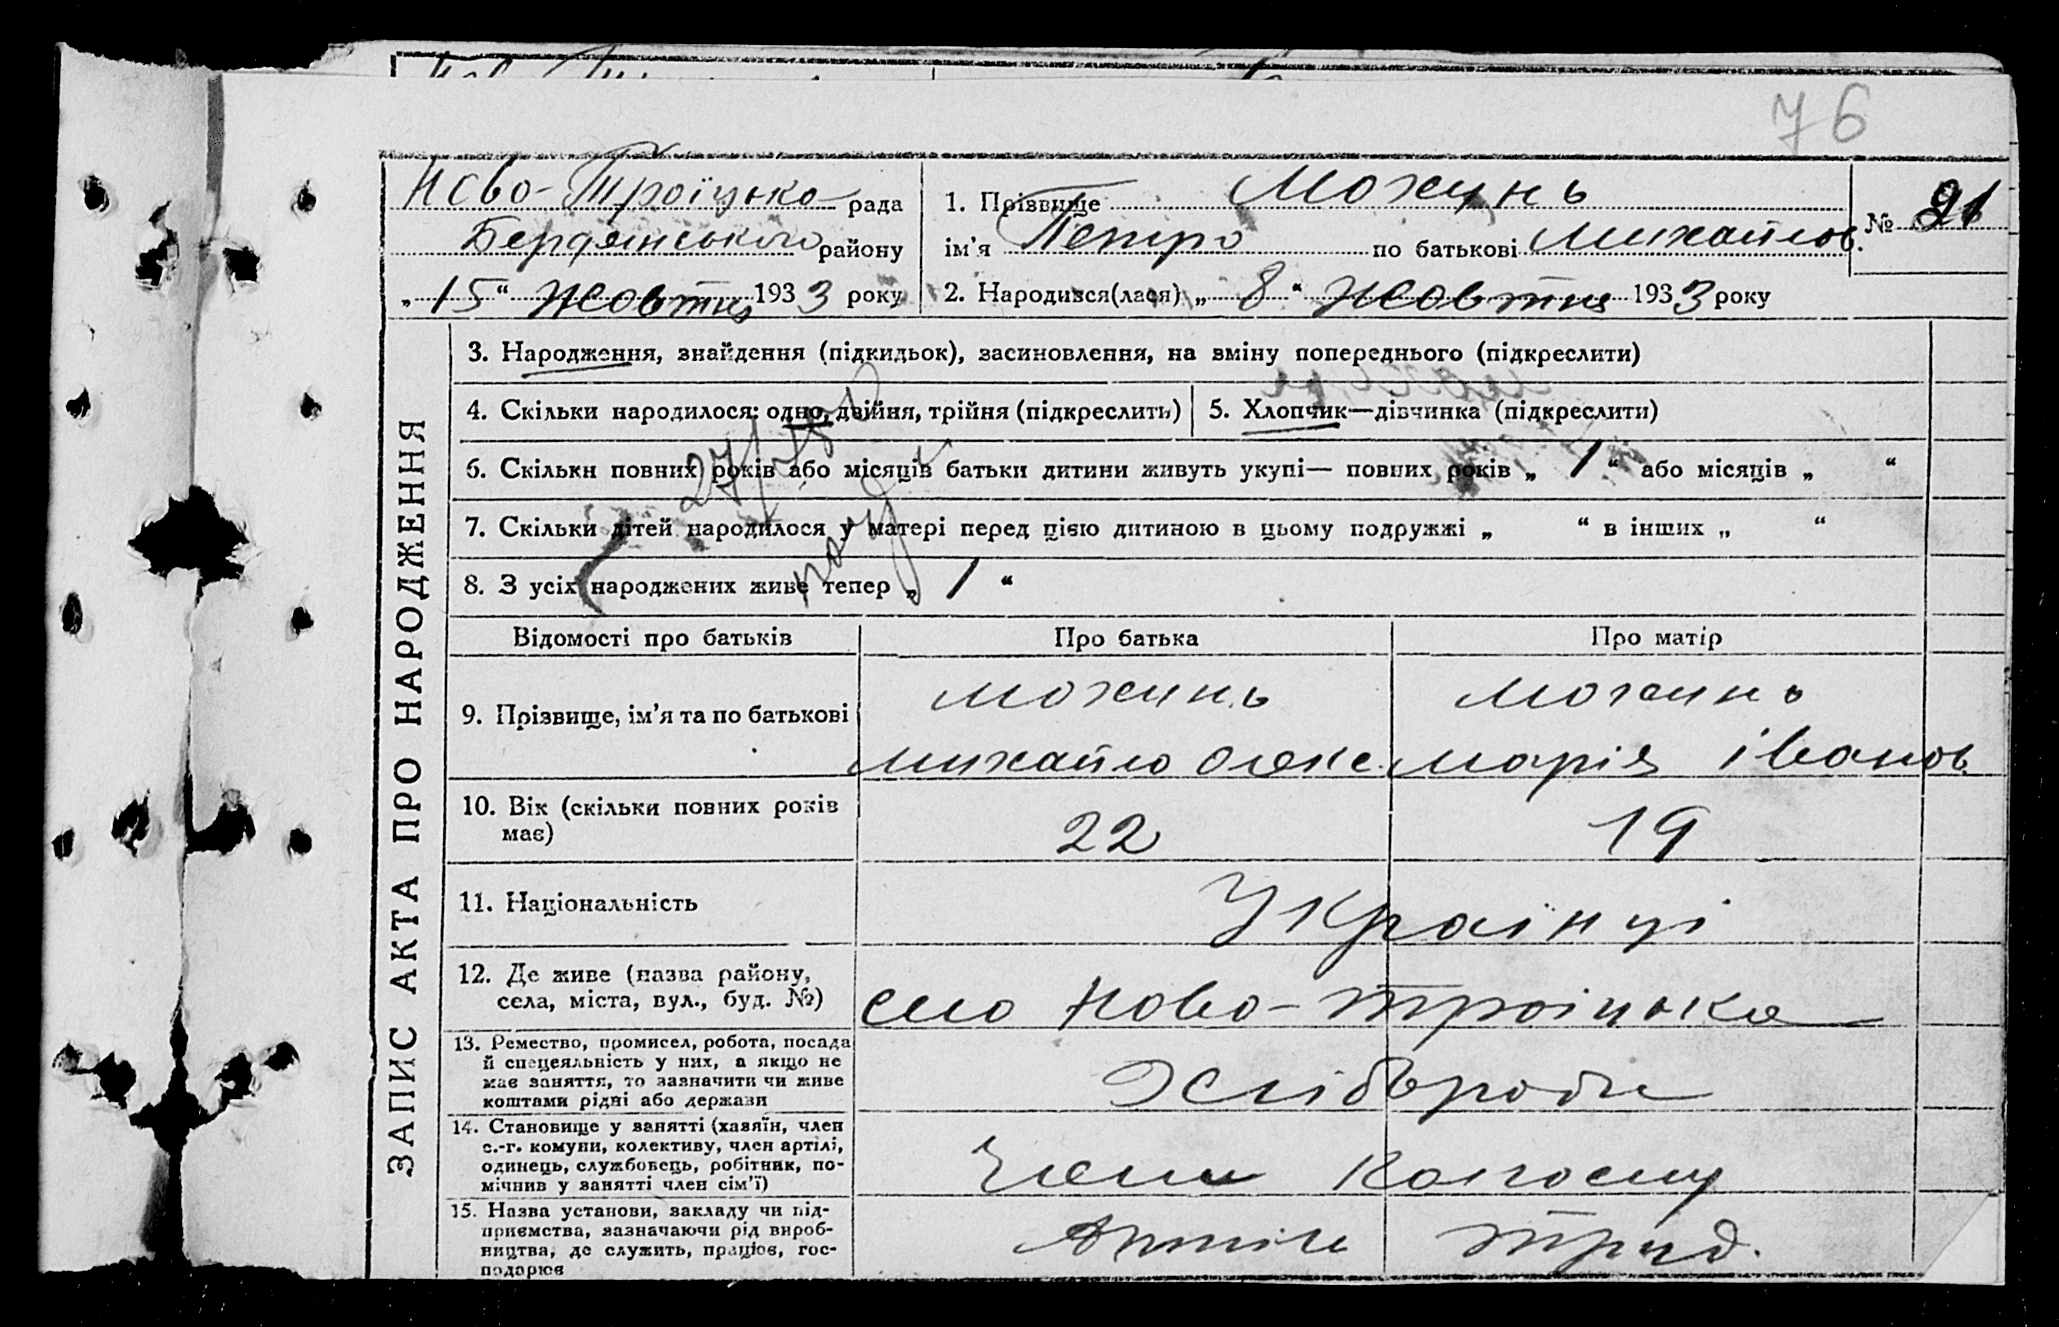 76
Ново-Троїцька рада
Бердянського району
„ 15 “ Жовтня 1933 року
1. ПрізвищеМожинь
ім’я Петро по батькові Михайлов.
№ 91
2. Народився(лася) „ 8 “ Жовтня 1933 року
ЗАПИС АКТА ПРО НАРОДЖЕННЯ
3. Народження, знайдення (підкидьок), засиновлення, на зміну попереднього (підкреслити)
4. Скільки народилося: одно, двійня, трійня (підкреслить)
5. Хлопчик—дівчинка (підкреслити)
6. Скільки повних років або місяців батьки дитини живуть укупі— повних років „ 1 “ або місяців „ “
7. Скільки дітей народилося у матері перед цією дитиною в цьому подружжі „ “ в інших „ “
8. З усіх народжених живе тепер „ 1 “
Відомості про батьків Про батька Про матір
9. Прізвище, ім’я та по батькові
Можинь
Михайло Олекс.
Можинь
Марія Іванов.
10. Вік (скільки повних років
має)
22 19
11. Національність
Українці
12. Де живе (назва району,
села, міста, вул., буд. №)
село Ново-Троіцька
13. Ремество, промисел, робота, посада
й спецеяльність у них, а якщо не
має заняття, то зазначити чи живе
коштами рідні або держави
Хлібороби
14. Становище у занятті (хазяїн, член
с.-г. комуни, колективу, член артілі,
одинець, службовець, робітник, по-
мічнив у занятті член сім’ї)
Члени Колгоспу
15. Назва установи, закладу чи під-
приємства, зазначаючи рід вироб-
ництва, де служить, працює, гос-
подарює
Артіль Труд.